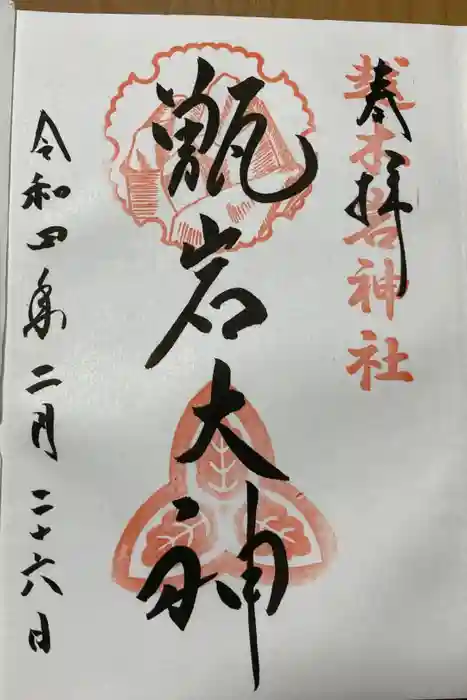 奉拝
越木岩神社
甑岩大神
令和四年二月二十六日